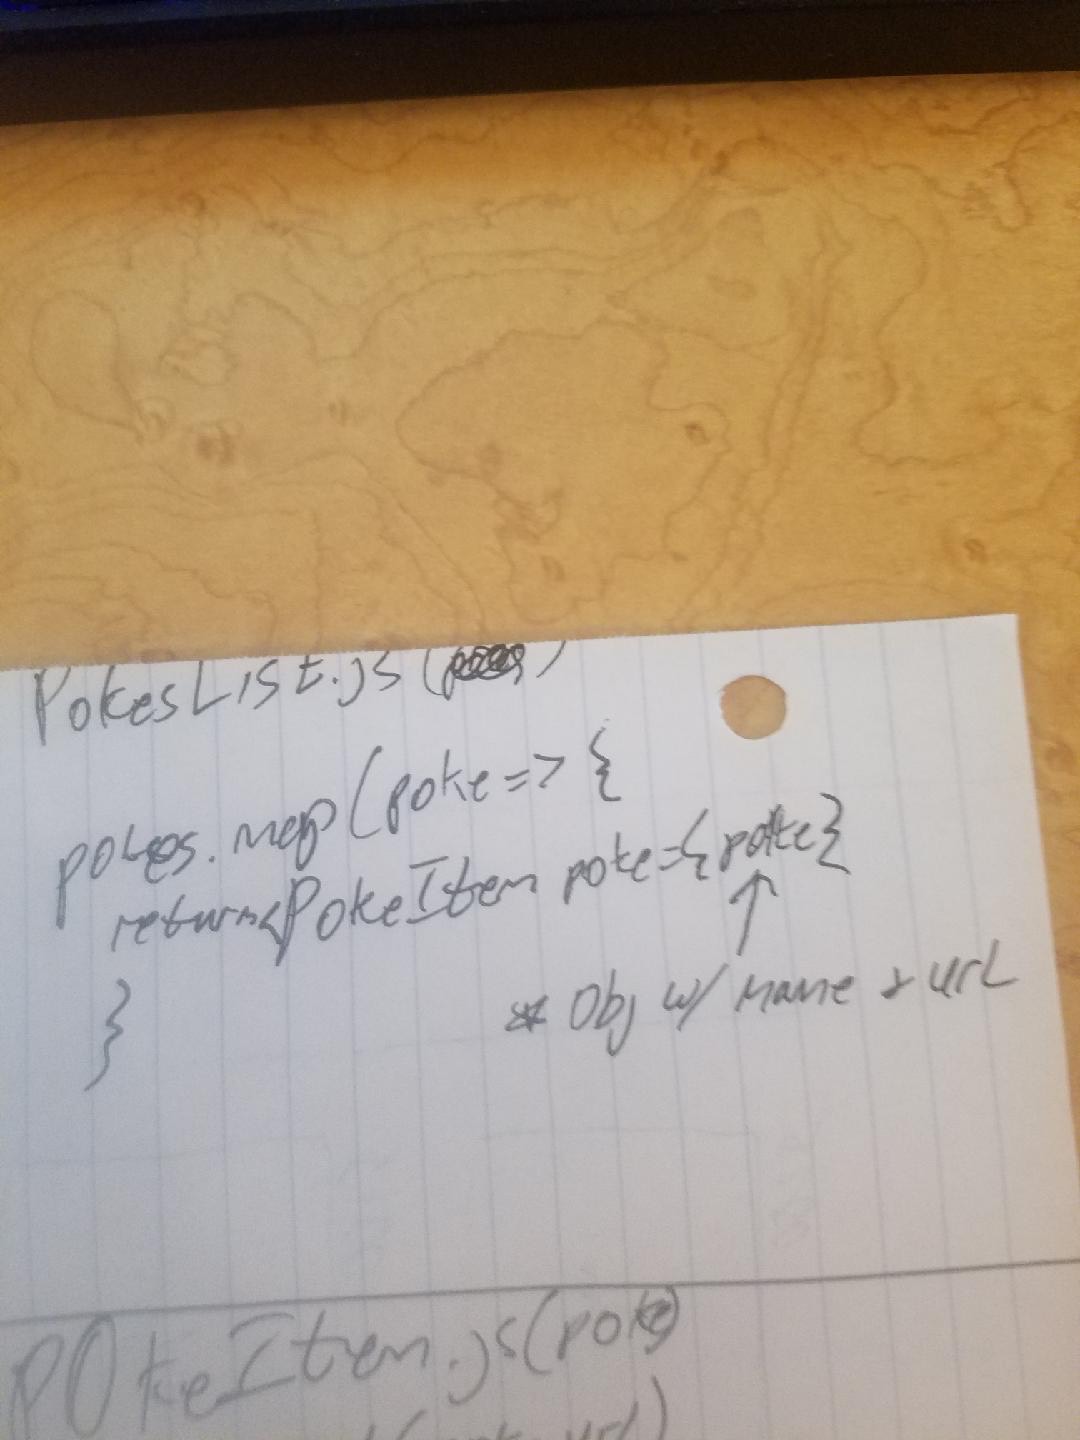 PokesList.js (pokes)
pokes.map(poke => {
return <PokeItem poke={poke}
}
* Obj w/ name & url
PokeItem.js(poke)
url)